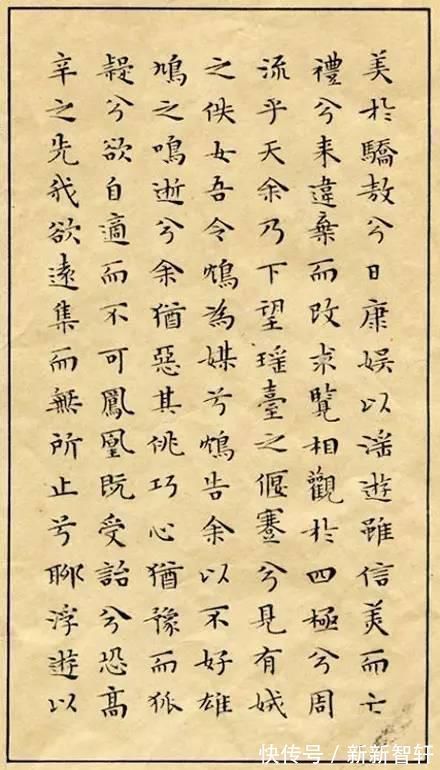 美於驕敖兮日康娛以滛遊雖信美而亡
禮兮来違棄而改求覽相觀於四極兮周
流乎天余乃下望瑶臺之偃蹇兮見有娀
之佚女吾令鴆為媒兮鴆告余以不好雄
鳩之鳴逝兮余猶惡其佻巧心猶豫而狐
疑兮欲自適而不可鳳凰既受詒兮恐高
辛之先我欲遠集而無所止兮聊浮遊以
快传号 / 新新智轩